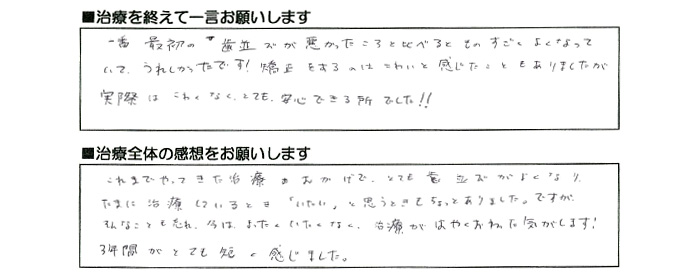 ■治療を終えて一言お願いします
一番最初の歯並びが悪かったころと比べるとものすごくよくなって
いて、うれしかったです!矯正をするのはこわいと感じたこともありましたが
実際はこわくなく、とても、安心できる所でした!!
■治療全体の感想をお願いします
これまでやってきた治療のおかげで、とても歯並びがよくなり、
たまに治療していると「いたい」と思うときもちょっとありました。ですが、
そんなことも忘れ、今は、まったくいたくなく、治療がはやくおわった気がします!
3年間がとても短く感じました。